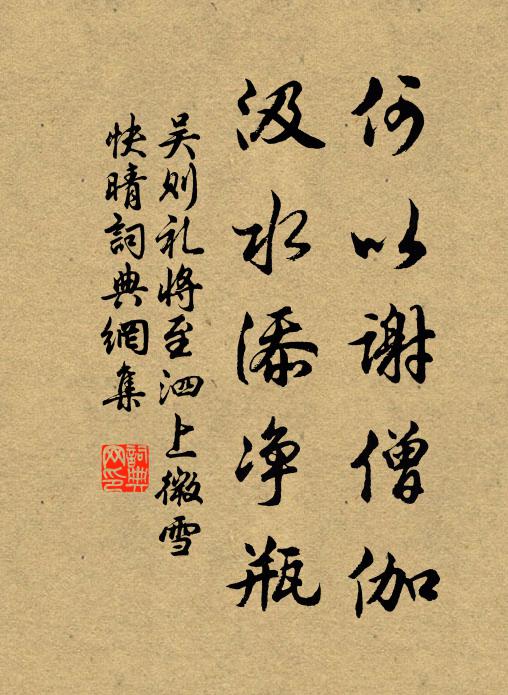 何以谢僧伽
汲水添净瓶
吴则礼将至泗上微雪
快晴詞典網集
詞典
网印